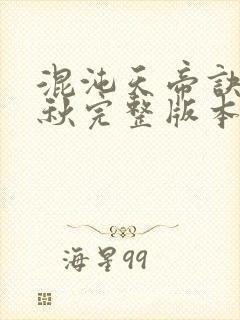 混沌天帝诀
秋完整版本
海星99